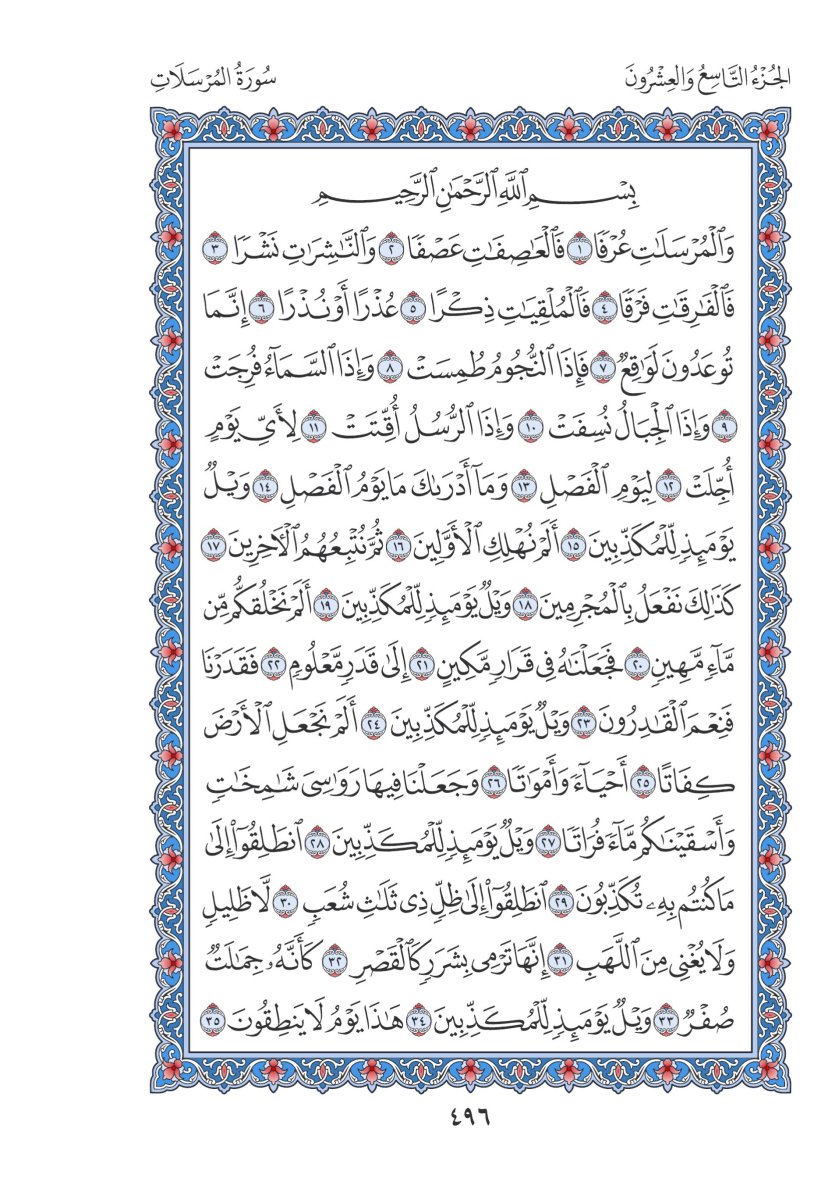 الجُزْءُ التَّاسِعُ وَالعِشْرُونَ
سُورَةُ المُرْسَلَاتِ
بِسْمِ ٱللَّهِ ٱلرَّحْمَٰنِ ٱلرَّحِيمِ
وَٱلْمُرْسَلَٰتِ عُرْفًا ١ فَٱلْعَٰصِفَٰتِ عَصْفًا ٢ وَٱلنَّٰشِرَٰتِ نَشْرًا ٣
فَٱلْفَٰرِقَٰتِ فَرْقًا ٤ فَٱلْمُلْقِيَٰتِ ذِكْرًا ٥ عُذْرًا أَوْ نُذْرًا ٦ إِنَّمَا
تُوعَدُونَ لَوَٰقِعٌ ٧ فَإِذَا ٱلنُّجُومُ طُمِسَتْ ٨ وَإِذَا ٱلسَّمَآءُ فُرِجَتْ
٩ وَإِذَا ٱلْجِبَالُ نُسِفَتْ ١٠ وَإِذَا ٱلرُّسُلُ أُقِّتَتْ ١١ لِأَيِّ يَوْمٍ
أُجِّلَتْ ١٢ لِيَوْمِ ٱلْفَصْلِ ١٣ وَمَآ أَدْرَىٰكَ مَا يَوْمُ ٱلْفَصْلِ ١٤ وَيْلٌ
يَوْمَئِذٍ لِّلْمُكَذِّبِينَ ١٥ أَلَمْ نُهْلِكِ ٱلْأَوَّلِينَ ١٦ ثُمَّ نُتْبِعُهُمُ ٱلْأٓخِرِينَ ١٧
كَذَٰلِكَ نَفْعَلُ بِٱلْمُجْرِمِينَ ١٨ وَيْلٌ يَوْمَئِذٍ لِّلْمُكَذِّبِينَ ١٩ أَلَمْ نَخْلُقكُّم مِّن
مَّآءٍ مَّهِينٍ ٢٠ فَجَعَلْنَٰهُ فِى قَرَارٍ مَّكِينٍ ٢١ إِلَىٰ قَدَرٍ مَّعْلُومٍ ٢٢ فَقَدَرْنَا
فَنِعْمَ ٱلْقَٰدِرُونَ ٢٣ وَيْلٌ يَوْمَئِذٍ لِّلْمُكَذِّبِينَ ٢٤ أَلَمْ نَجْعَلِ ٱلْأَرْضَ
كِفَاتًا ٢٥ أَحْيَآءً وَأَمْوَٰتًا ٢٦ وَجَعَلْنَا فِيهَا رَوَٰسِىَ شَٰمِخَٰتٍ
وَأَسْقَيْنَٰكُم مَّآءً فُرَاتًا ٢٧ وَيْلٌ يَوْمَئِذٍ لِّلْمُكَذِّبِينَ ٢٨ ٱنطَلِقُوٓا۟ إِلَىٰ
مَا كُنتُم بِهِۦ تُكَذِّبُونَ ٢٩ ٱنطَلِقُوٓا۟ إِلَىٰ ظِلٍّ ذِى ثَلَٰثِ شُعَبٍ ٣٠ لَّا ظَلِيلٍ
وَلَا يُغْنِى مِنَ ٱللَّهَبِ ٣١ إِنَّهَا تَرْمِى بِشَرَرٍ كَٱلْقَصْرِ ٣٢ كَأَنَّهُۥ جِمَٰلَتٌ
صُفْرٌ ٣٣ وَيْلٌ يَوْمَئِذٍ لِّلْمُكَذِّبِينَ ٣٤ هَٰذَا يَوْمُ لَا يَنطِقُونَ ٣٥
٤٩٦